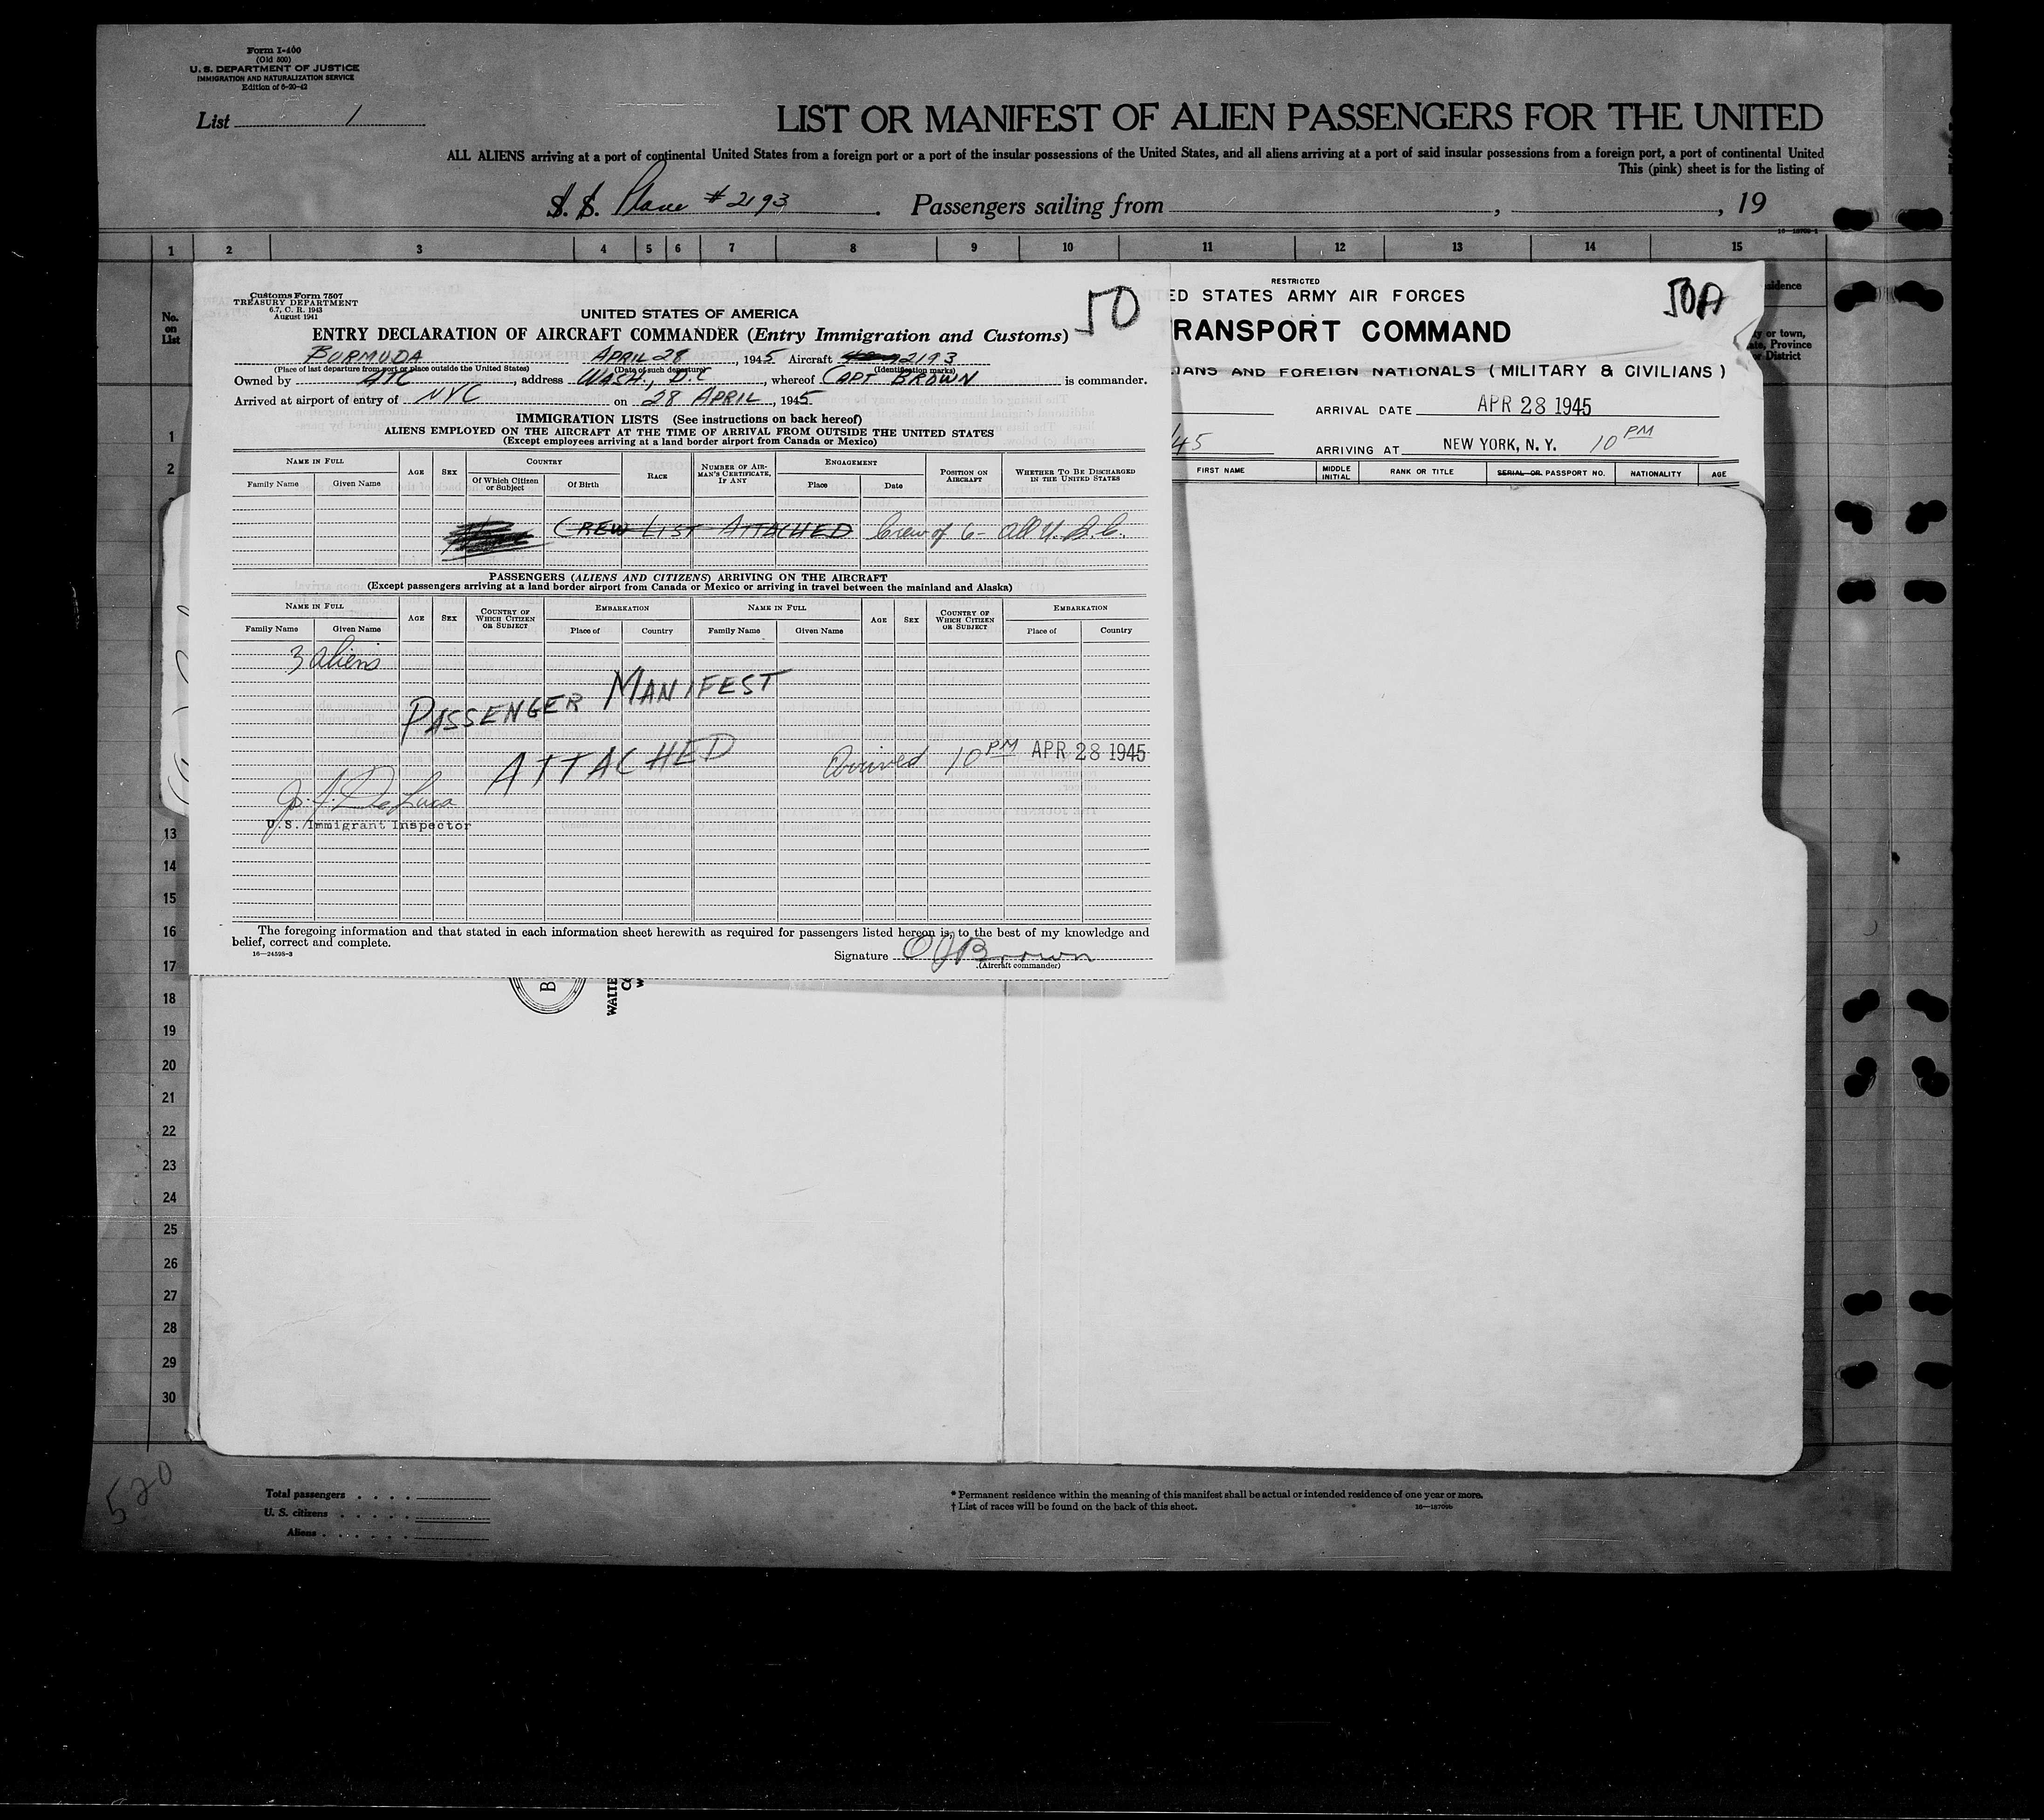 Form I-400
(Old 500)
U. S. DEPARTMENT OF JUSTICE
IMMIGRATION AND NATURALIZATION SERVICE
Edition of 6-20-42
List 1
LIST OR MANIFEST OF ALIEN PASSENGERS FOR THE UNITED
ALL ALIENS arriving at a port of continental United States from a foreign port or a port of the insular possessions of the United States, and all aliens arriving at a port of said insular possessions from a foreign port, a port of continental United
This (pink) sheet is for the listing of
S. S. Plane # 2193 . Passengers sailing from , , 19
1 2 3 4 5 6 7 8 9 10 11 12 13 14 15
No. on List
sidence
or town,
ate, Province
or District
Customs Form 7507
TREASURY DEPARTMENT
6.7, C. R. 1943
August 1941
50
UNITED STATES OF AMERICA
ENTRY DECLARATION OF AIRCRAFT COMMANDER (Entry Immigration and Customs)
BURMUDA APRIL 28, 1945 Aircraft 2193
(Place of last departure from port or place outside the United States) (Date of such departure) (Identification marks)
Owned by ATC, address WASH., D.C, whereof CAPT BROWN is commander.
Arrived at airport of entry of NYC on 28 APRIL, 1945.
IMMIGRATION LISTS (See instructions on back hereof)
ALIENS EMPLOYED ON THE AIRCRAFT AT THE TIME OF ARRIVAL FROM OUTSIDE THE UNITED STATES
(Except employees arriving at a land border airport from Canada or Mexico)
NAME IN FULL AGE SEX COUNTRY RACE NUMBER OF AIRMAN'S CERTIFICATE, IF ANY ENGAGEMENT POSITION ON AIRCRAFT WHETHER TO BE DISCHARGED IN THE UNITED STATES
Family Name Given Name Of Which Citizen or Subject Of Birth Place Date
CREW LIST ATTACHED Crew of 6- All U.S.C.
PASSENGERS (ALIENS AND CITIZENS) ARRIVING ON THE AIRCRAFT
(Except passengers arriving at a land border airport from Canada or Mexico or arriving in travel between the mainland and Alaska)
NAME IN FULL AGE SEX COUNTRY OF WHICH CITIZEN OR SUBJECT EMBARKATION NAME IN FULL AGE SEX COUNTRY OF WHICH CITIZEN OR SUBJECT EMBARKATION
Family Name Given Name Place of Country Family Name Given Name Place of Country
3 aliens
PASSENGER MANIFEST
ATTACHED
Arrived 10 PM APR 28 1945
J. A. DeLuca
U.S. Immigrant Inspector
The foregoing information and that stated in each information sheet herewith as required for passengers listed hereon is, to the best of my knowledge and
belief, correct and complete.
16—24598-3
Signature OJBrown
(Aircraft commander)
RESTRICTED
50A
ED STATES ARMY AIR FORCES
RANSPORT COMMAND
IANS AND FOREIGN NATIONALS (MILITARY & CIVILIANS)
ARRIVAL DATE APR 28 1945
45 ARRIVING AT NEW YORK, N. Y. 10 PM
FIRST NAME MIDDLE INITIAL RANK OR TITLE SERIAL OR PASSPORT NO. NATIONALITY AGE
1
2
13
14
15
16
17
18
19
20
21
22
23
24
25
26
27
28
29
30
B
WALTE
520
Total passengers . . . .
U. S. citizens . . . . .
Aliens . . . . . .
* Permanent residence within the meaning of this manifest shall be actual or intended residence of one year or more.
† List of races will be found on the back of this sheet.